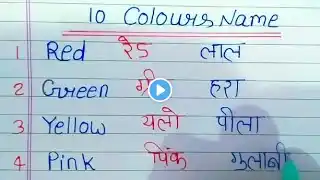 10 Colours Name
1 Red रेड लाल
2 Green हरा
3 Yellow यलो पीला
4 Pink पिंक गुलाबी